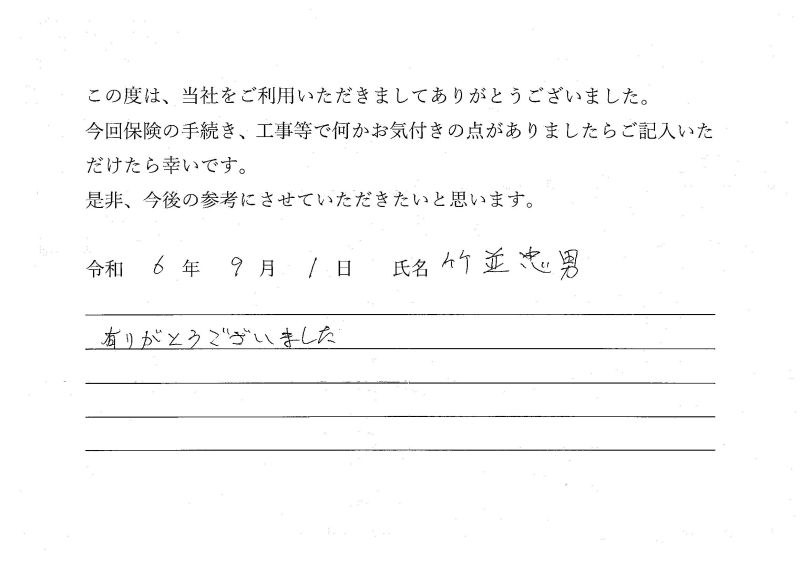 この度は、当社をご利用いただきましてありがとうございました。
今回保険の手続き、工事等で何かお気付きの点がありましたらご記入いた
だけたら幸いです。
是非、今後の参考にさせていただきたいと思います。
令和 6 年 9 月 1 日 氏名 竹並忠男
有りがとうございました